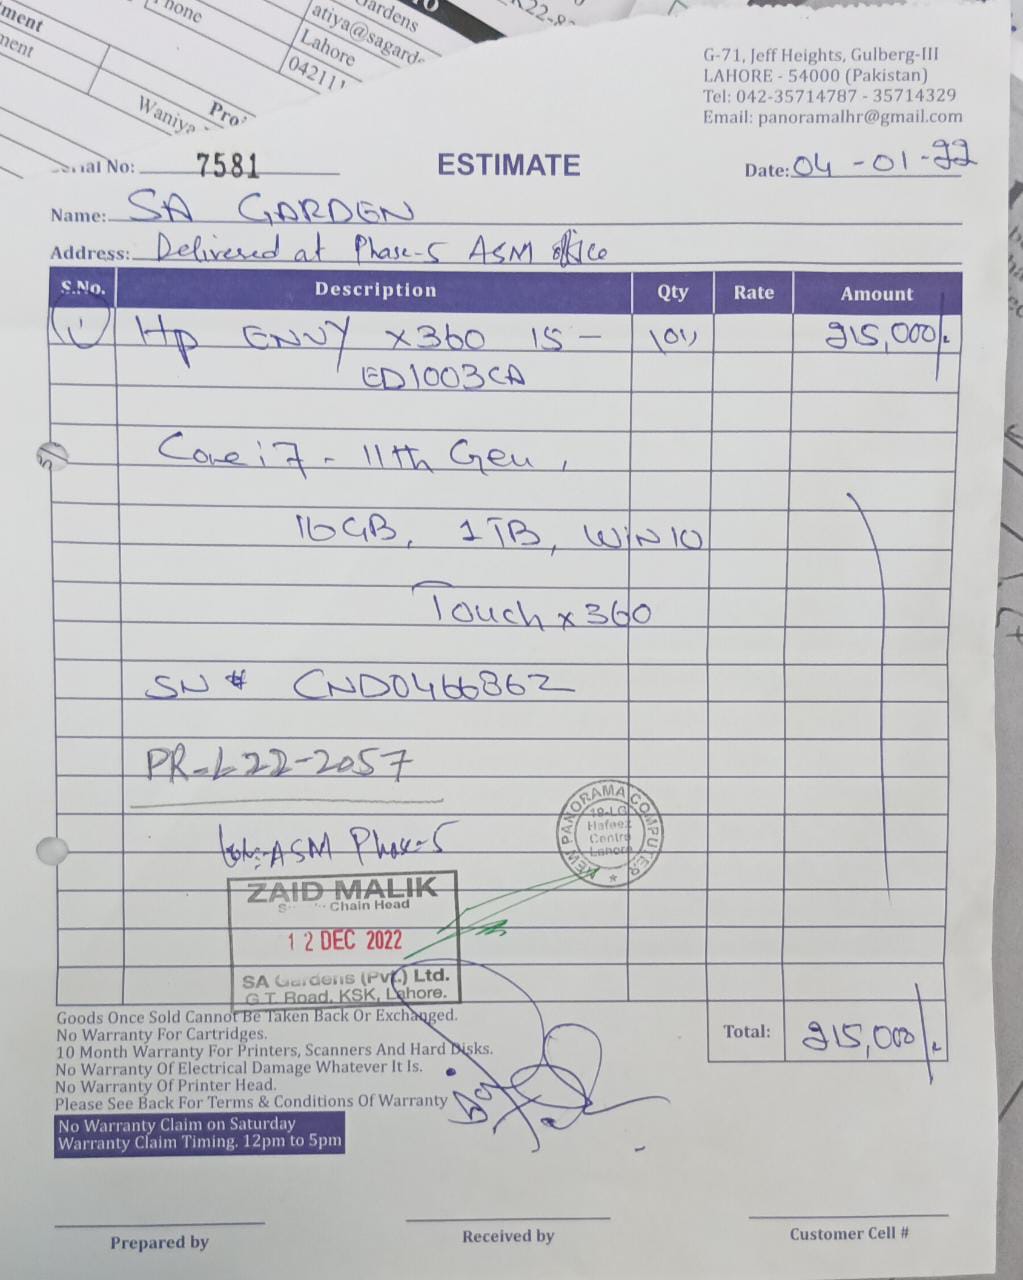 ment
ment
Phone
Pro
Waniya
Gardens
atiya@sagarde
Lahore
04211
G-71, Jeff Heights, Gulberg-III
LAHORE - 54000 (Pakistan)
Tel: 042-35714787 - 35714329
Email: panoramalhr@gmail.com
rial No: 7581 ESTIMATE Date: 04-01-22
Name: SA GARDEN
Address: Delivered at Phase-5 ASM office
S.No. Description Qty Rate Amount
1 Hp ENVY x360 15- (01) 215,000/-
ED1003CA
Core i7 - 11th Gen,
16GB, 1TB, WIN10
Touch x360
SN # CND0466862
PR-L22-2057
ASM Phase-5
NEW PANORAMA COMPUTER
19-LG
Hafeez
Centre
Lahore
ZAID MALIK
Chain Head
12 DEC 2022
SA Gardens (Pvt.) Ltd.
G.T. Road, KSK, Lahore.
Goods Once Sold Cannot Be Taken Back Or Exchanged.
No Warranty For Cartridges.
10 Month Warranty For Printers, Scanners And Hard Disks.
No Warranty Of Electrical Damage Whatever It Is.
No Warranty Of Printer Head.
Please See Back For Terms & Conditions Of Warranty
Total: 215,000/-
No Warranty Claim on Saturday
Warranty Claim Timing. 12pm to 5pm
Prepared by Received by Customer Cell #